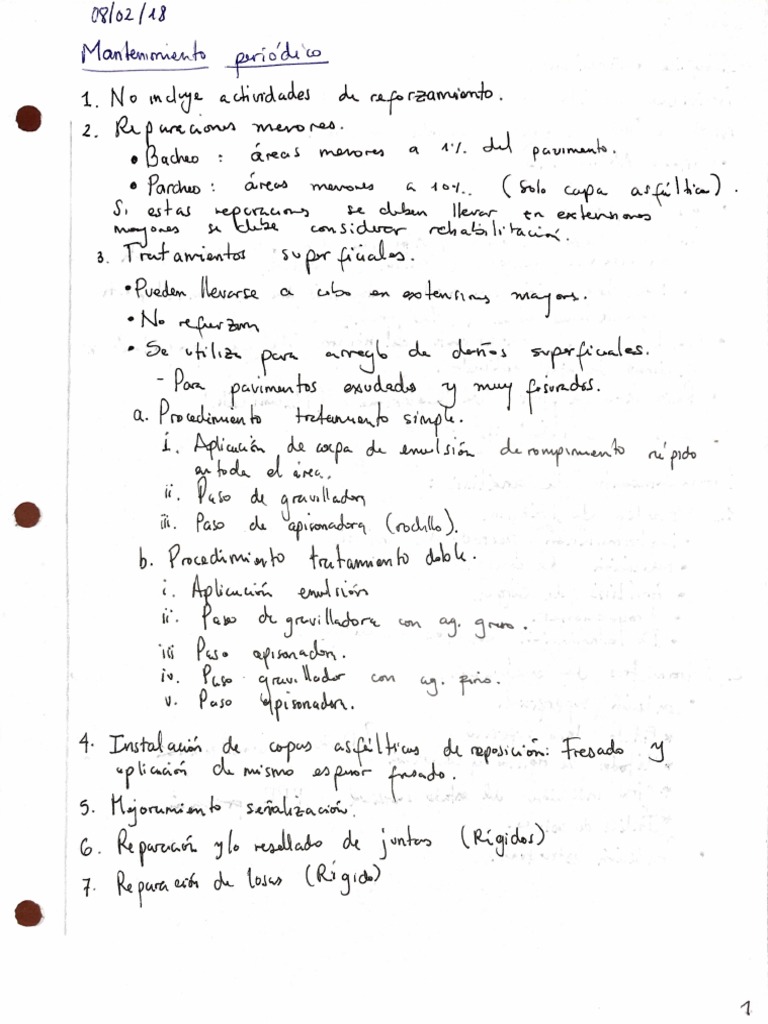 08/02/18
Mantenimiento periódico
1. No incluye actividades de reforzamiento.
2. Reparaciones menores.
• Bacheo : áreas menores a 1% del pavimento.
• Parcheo : áreas menores a 10%. (Solo capa asfáltica).
Si estas reparaciones se deben llevar en extensiones
mayores se debe considerar rehabilitación.
3. Tratamientos superficiales.
• Pueden llevarse a cabo en extensiones mayores.
• No refuerzan
• Se utiliza para arreglo de daños superficiales.
- Para pavimentos exudados y muy fisurados.
a. Procedimiento tratamiento simple.
i. Aplicación de capa de emulsión de rompimiento rápido
en toda el área.
ii. Paso de gravilladora
iii. Paso de apisonadora (rodillo).
b. Procedimiento tratamiento doble.
i. Aplicación emulsión
ii. Paso de gravilladora con ag. grueso.
iii Paso apisonadora.
iv. Paso gravillador con ag. fino.
v. Paso apisonadora.
4. Instalación de capas asfálticas de reposición: Fresado y
aplicación de mismo espesor fresado.
5. Mejoramiento señalización.
6. Reparación y/o resellado de juntas (Rígidos)
7. Reparación de losas (Rígido)
1